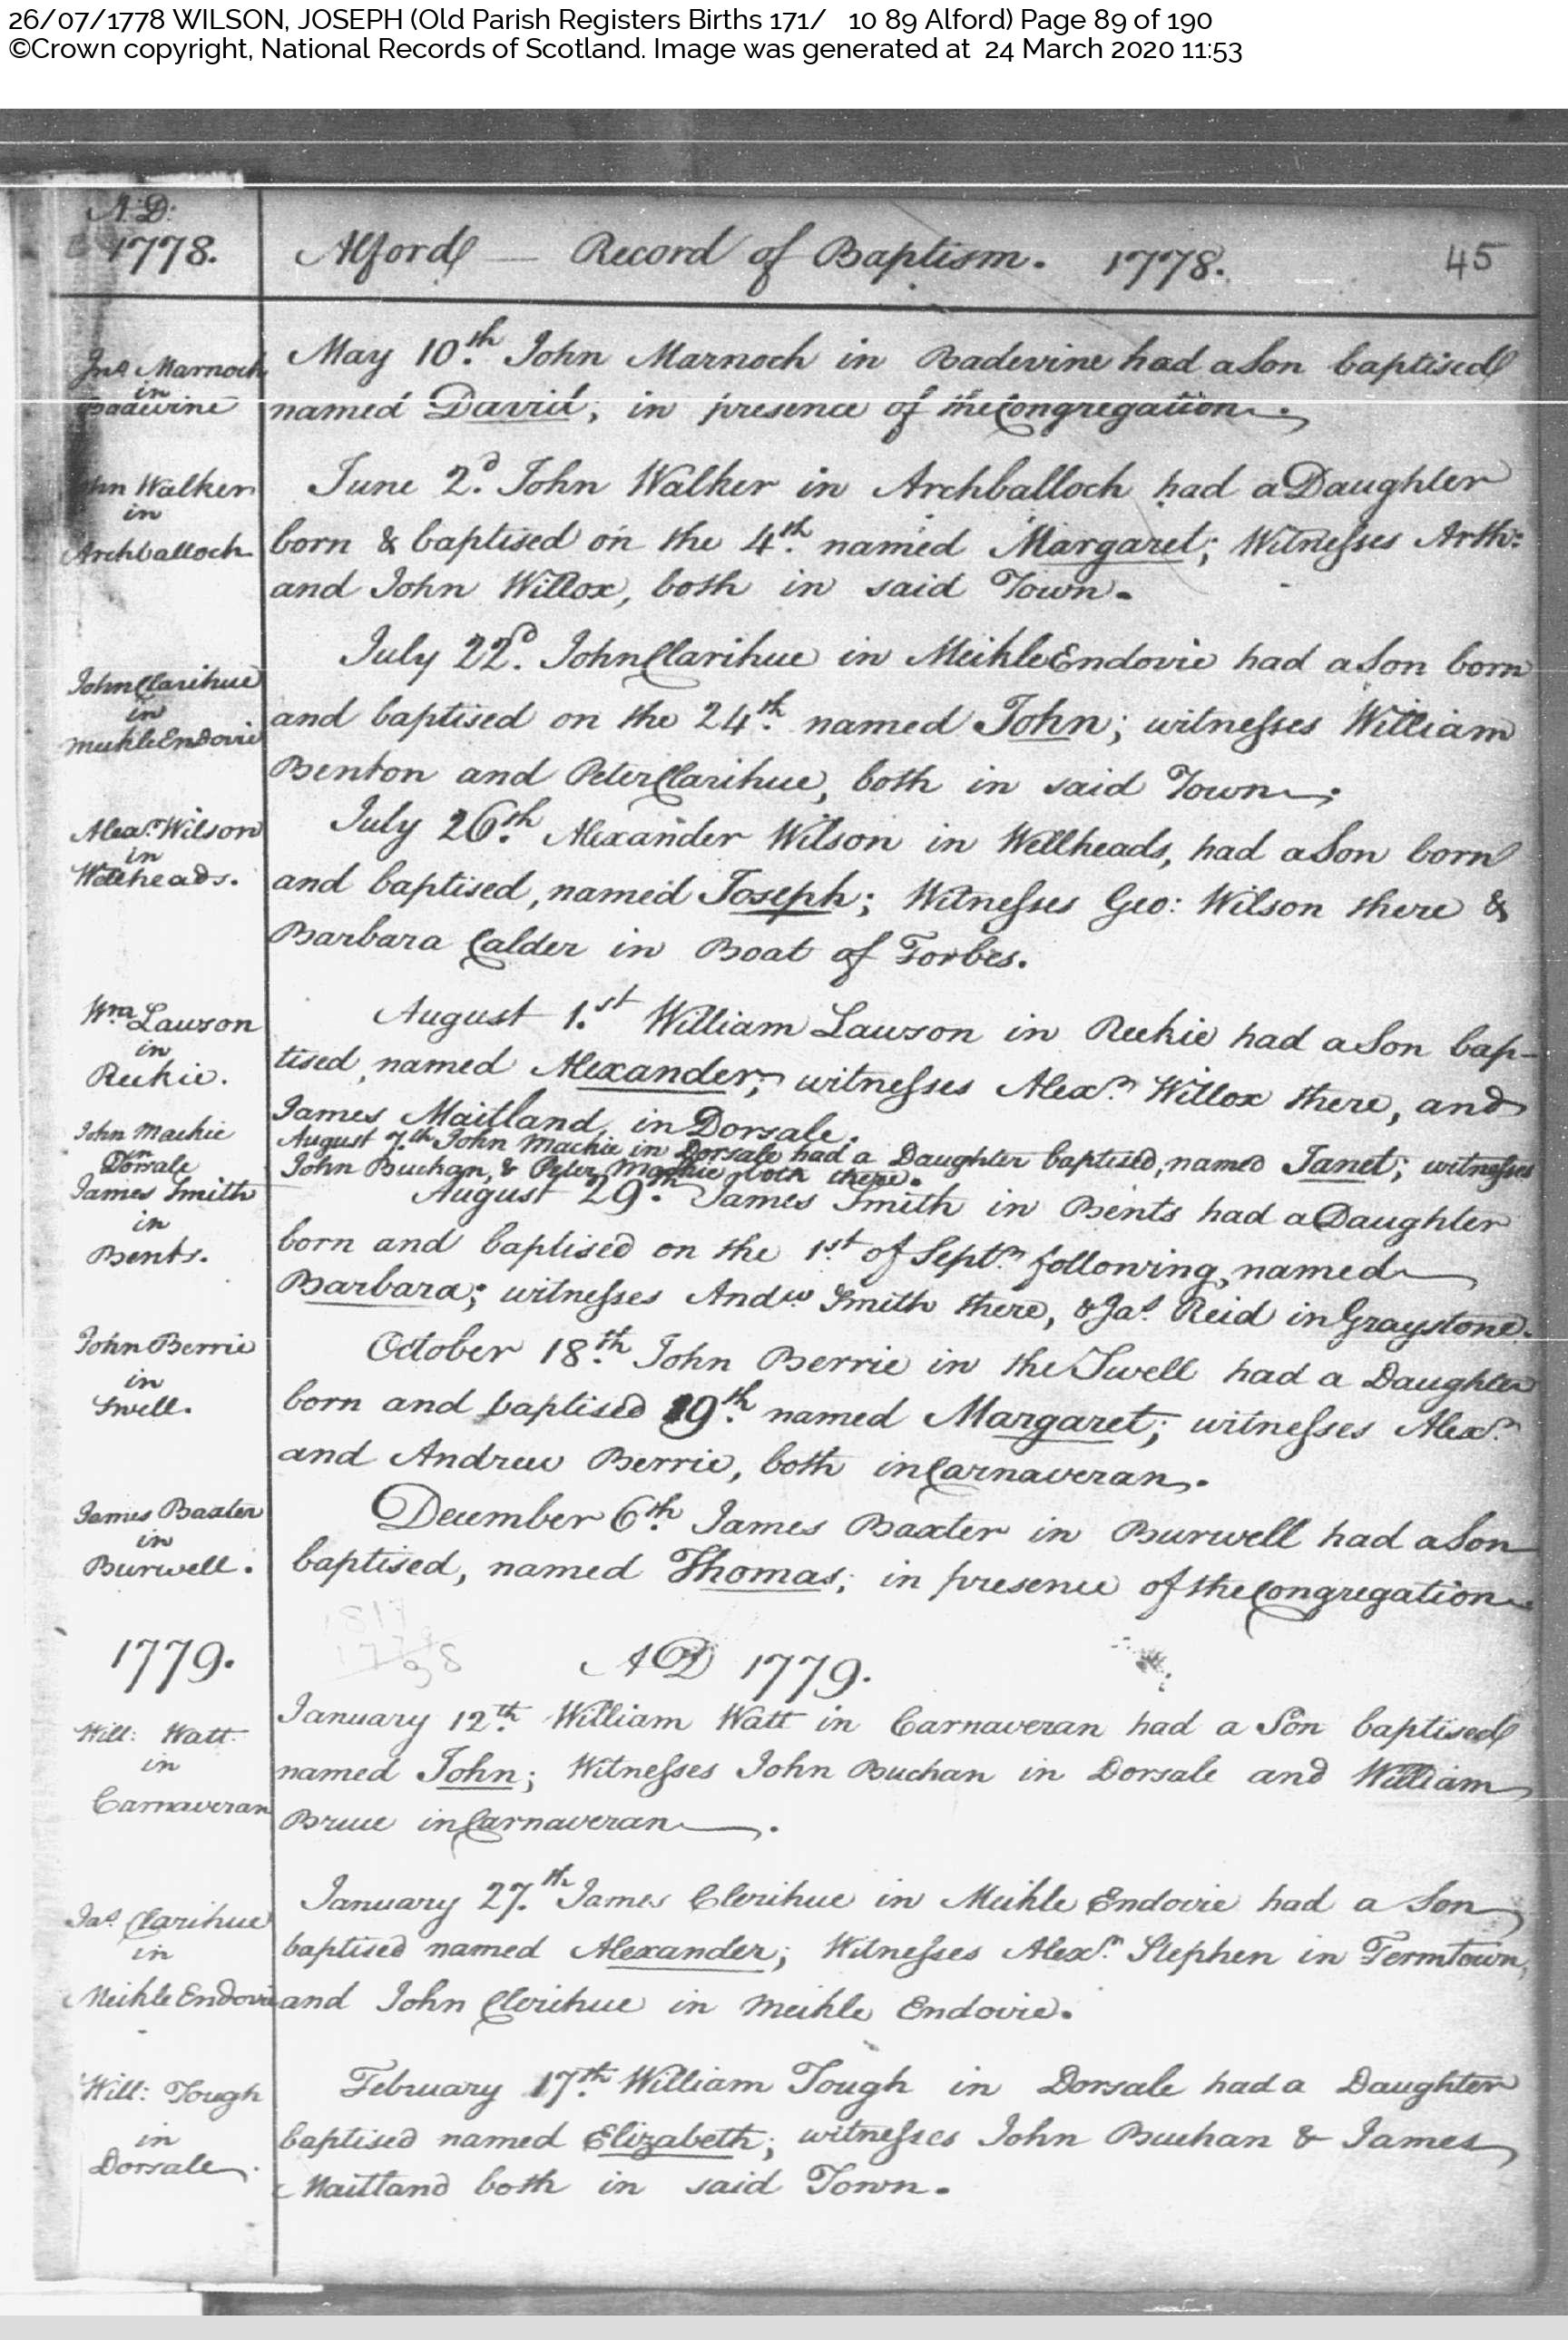 26/07/1778 WILSON, JOSEPH (Old Parish Registers Births 171/ 10 89 Alford) Page 89 of 190
©Crown copyright, National Records of Scotland. Image was generated at 24 March 2020 11:53
A:D:
1778.
Alford — Record of Baptism. 1778.
45
Jno. Marnoch
in
Badivine
May 10th. John Marnoch in Badevine had a Son baptised
named David; in presence of the Congregation.
John Walker
in
Archballoch
June 2d. John Walker in Archballoch had a Daughter
born & baptised on the 4th. named Margaret; Witnesses Arth:
and John Willox, both in said Town.
John Clarihue
in
Meikle Endovie
July 22d. John Clarihue in Meikle Endovie had a Son born
and baptised on the 24th. named John; witnesses William
Benton and Peter Clarihue, both in said Town.
Alexr. Wilson
in
Wellheads.
July 26th. Alexander Wilson in Wellheads, had a Son born
and baptised, named Joseph; Witnesses Geo: Wilson there &
Barbara Calder in Boat of Forbes.
Wm Lawson
in
Reekie.
August 1.st William Lawson in Reekie had a Son bap-
tised, named Alexander; witnesses Alexr. Willox there, and
James Maitland in Dorsale.
John Mackie
in
Dorsale
August 7.th John Mackie in Dorsale had a Daughter baptised, named Janet; witnesses
John Buchan, & Peter Mackie both there.
James Smith
in
Bents.
August 29.th James Smith in Bents had a Daughter
born and baptised on the 1.st of Septr. following, named
Barbara; witnesses Andw. Smith there, & Jas. Reid in Graystone.
John Berrie
in
Swell.
October 18.th John Berrie in the Swell had a Daughter
born and baptised 19th. named Margaret; witnesses Alexr.
and Andrew Berrie, both in Carnaveran.
James Baxter
in
Burwell.
December 6th. James Baxter in Burwell had a Son
baptised, named Thomas; in presence of the Congregation
1779.
AD 1779.
Will: Watt
in
Carnaveran
January 12th. William Watt in Carnaveran had a Son baptised
named John; Witnesses John Buchan in Dorsale and William
Bruce in Carnaveran.
Jas. Clarihue
in
Meikle Endovie
January 27.th James Clerihue in Meikle Endovie had a Son
baptised named Alexander; Witnesses Alexr. Stephen in Fermtown,
and John Clerihue in Meikle Endovie.
Will: Tough
in
Dorsale.
February 17.th William Tough in Dorsale had a Daughter
baptised named Elizabeth; witnesses John Buchan & James
Maitland both in said Town.